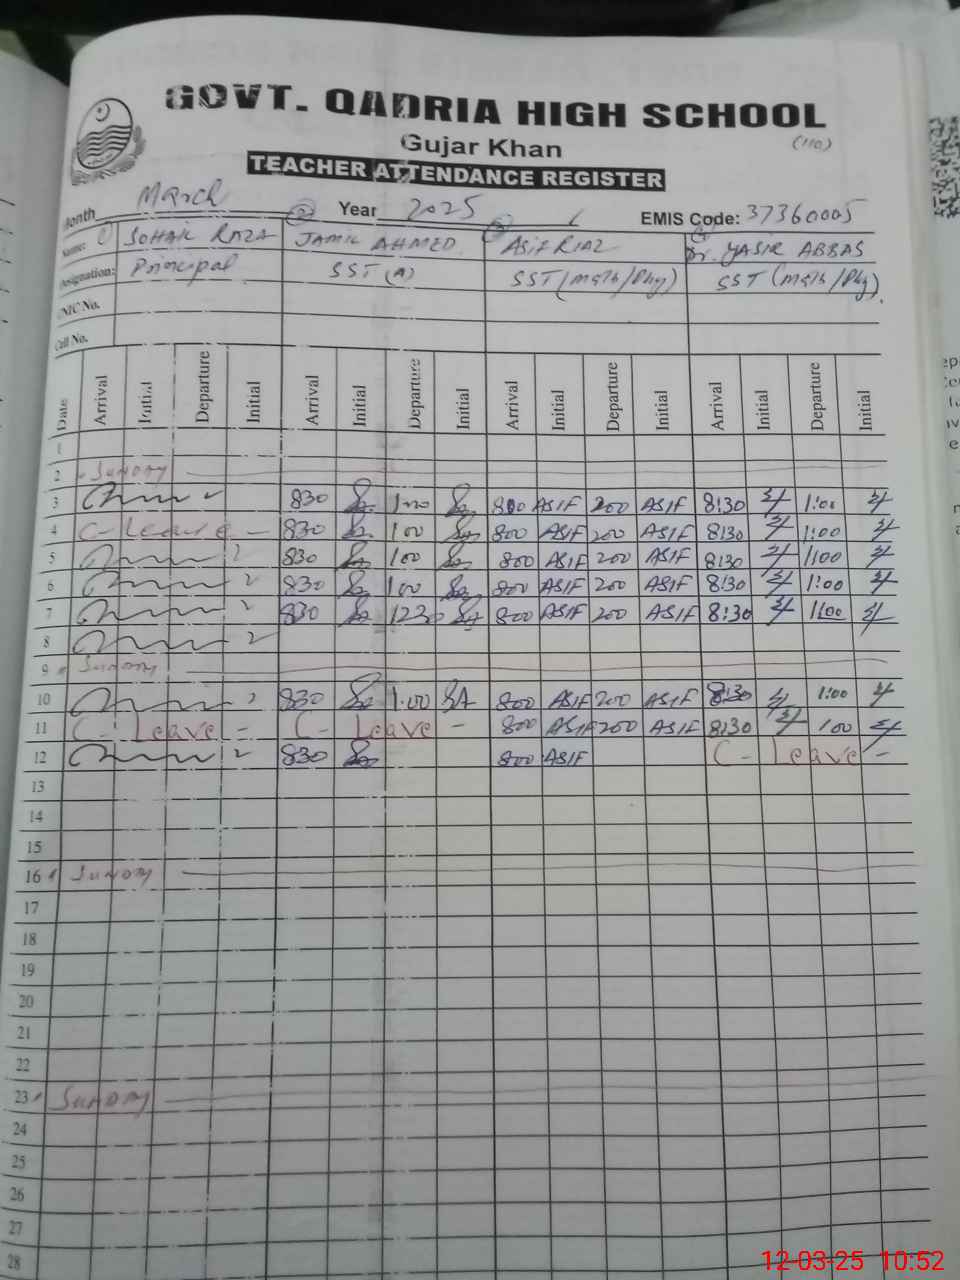 GOVT. QADRIA HIGH SCHOOL
Gujar Khan (110)
TEACHER ATTENDANCE REGISTER
Month March Year 2025 EMIS Code: 37360005
Name: 1 SOHAIL RAZA 2 JAMIL AHMED 3 ASIF RIAZ 4 Dr. YASIR ABBAS
Designation: Principal SST (A) SST (Math/Phy) SST (Math/Phy).
CNIC No.
Cell No.
Date Arrival Initial Departure Initial Arrival Initial Departure Initial Arrival Initial Departure Initial Arrival Initial Departure Initial
1
2 Sunday
3 830 100 800 ASIF 200 ASIF 8:30 1:00
4 C- Leave - 830 100 800 ASIF 200 ASIF 8:30 1:00
5 830 100 800 ASIF 200 ASIF 8:30 1:00
6 830 100 800 ASIF 200 ASIF 8:30 1:00
7 830 1230 800 ASIF 200 ASIF 8:30 1:00
8
9 Sunday
10 830 1.00 800 ASIF 200 ASIF 8:30 1:00
11 C- Leave = C- Leave - 800 ASIF 200 ASIF 8:30 1:00
12 830 800 ASIF C- Leave -
13
14
15
16 Sunday
17
18
19
20
21
22
23 Sunday
24
25
26
27
28
12-03-25 10:52